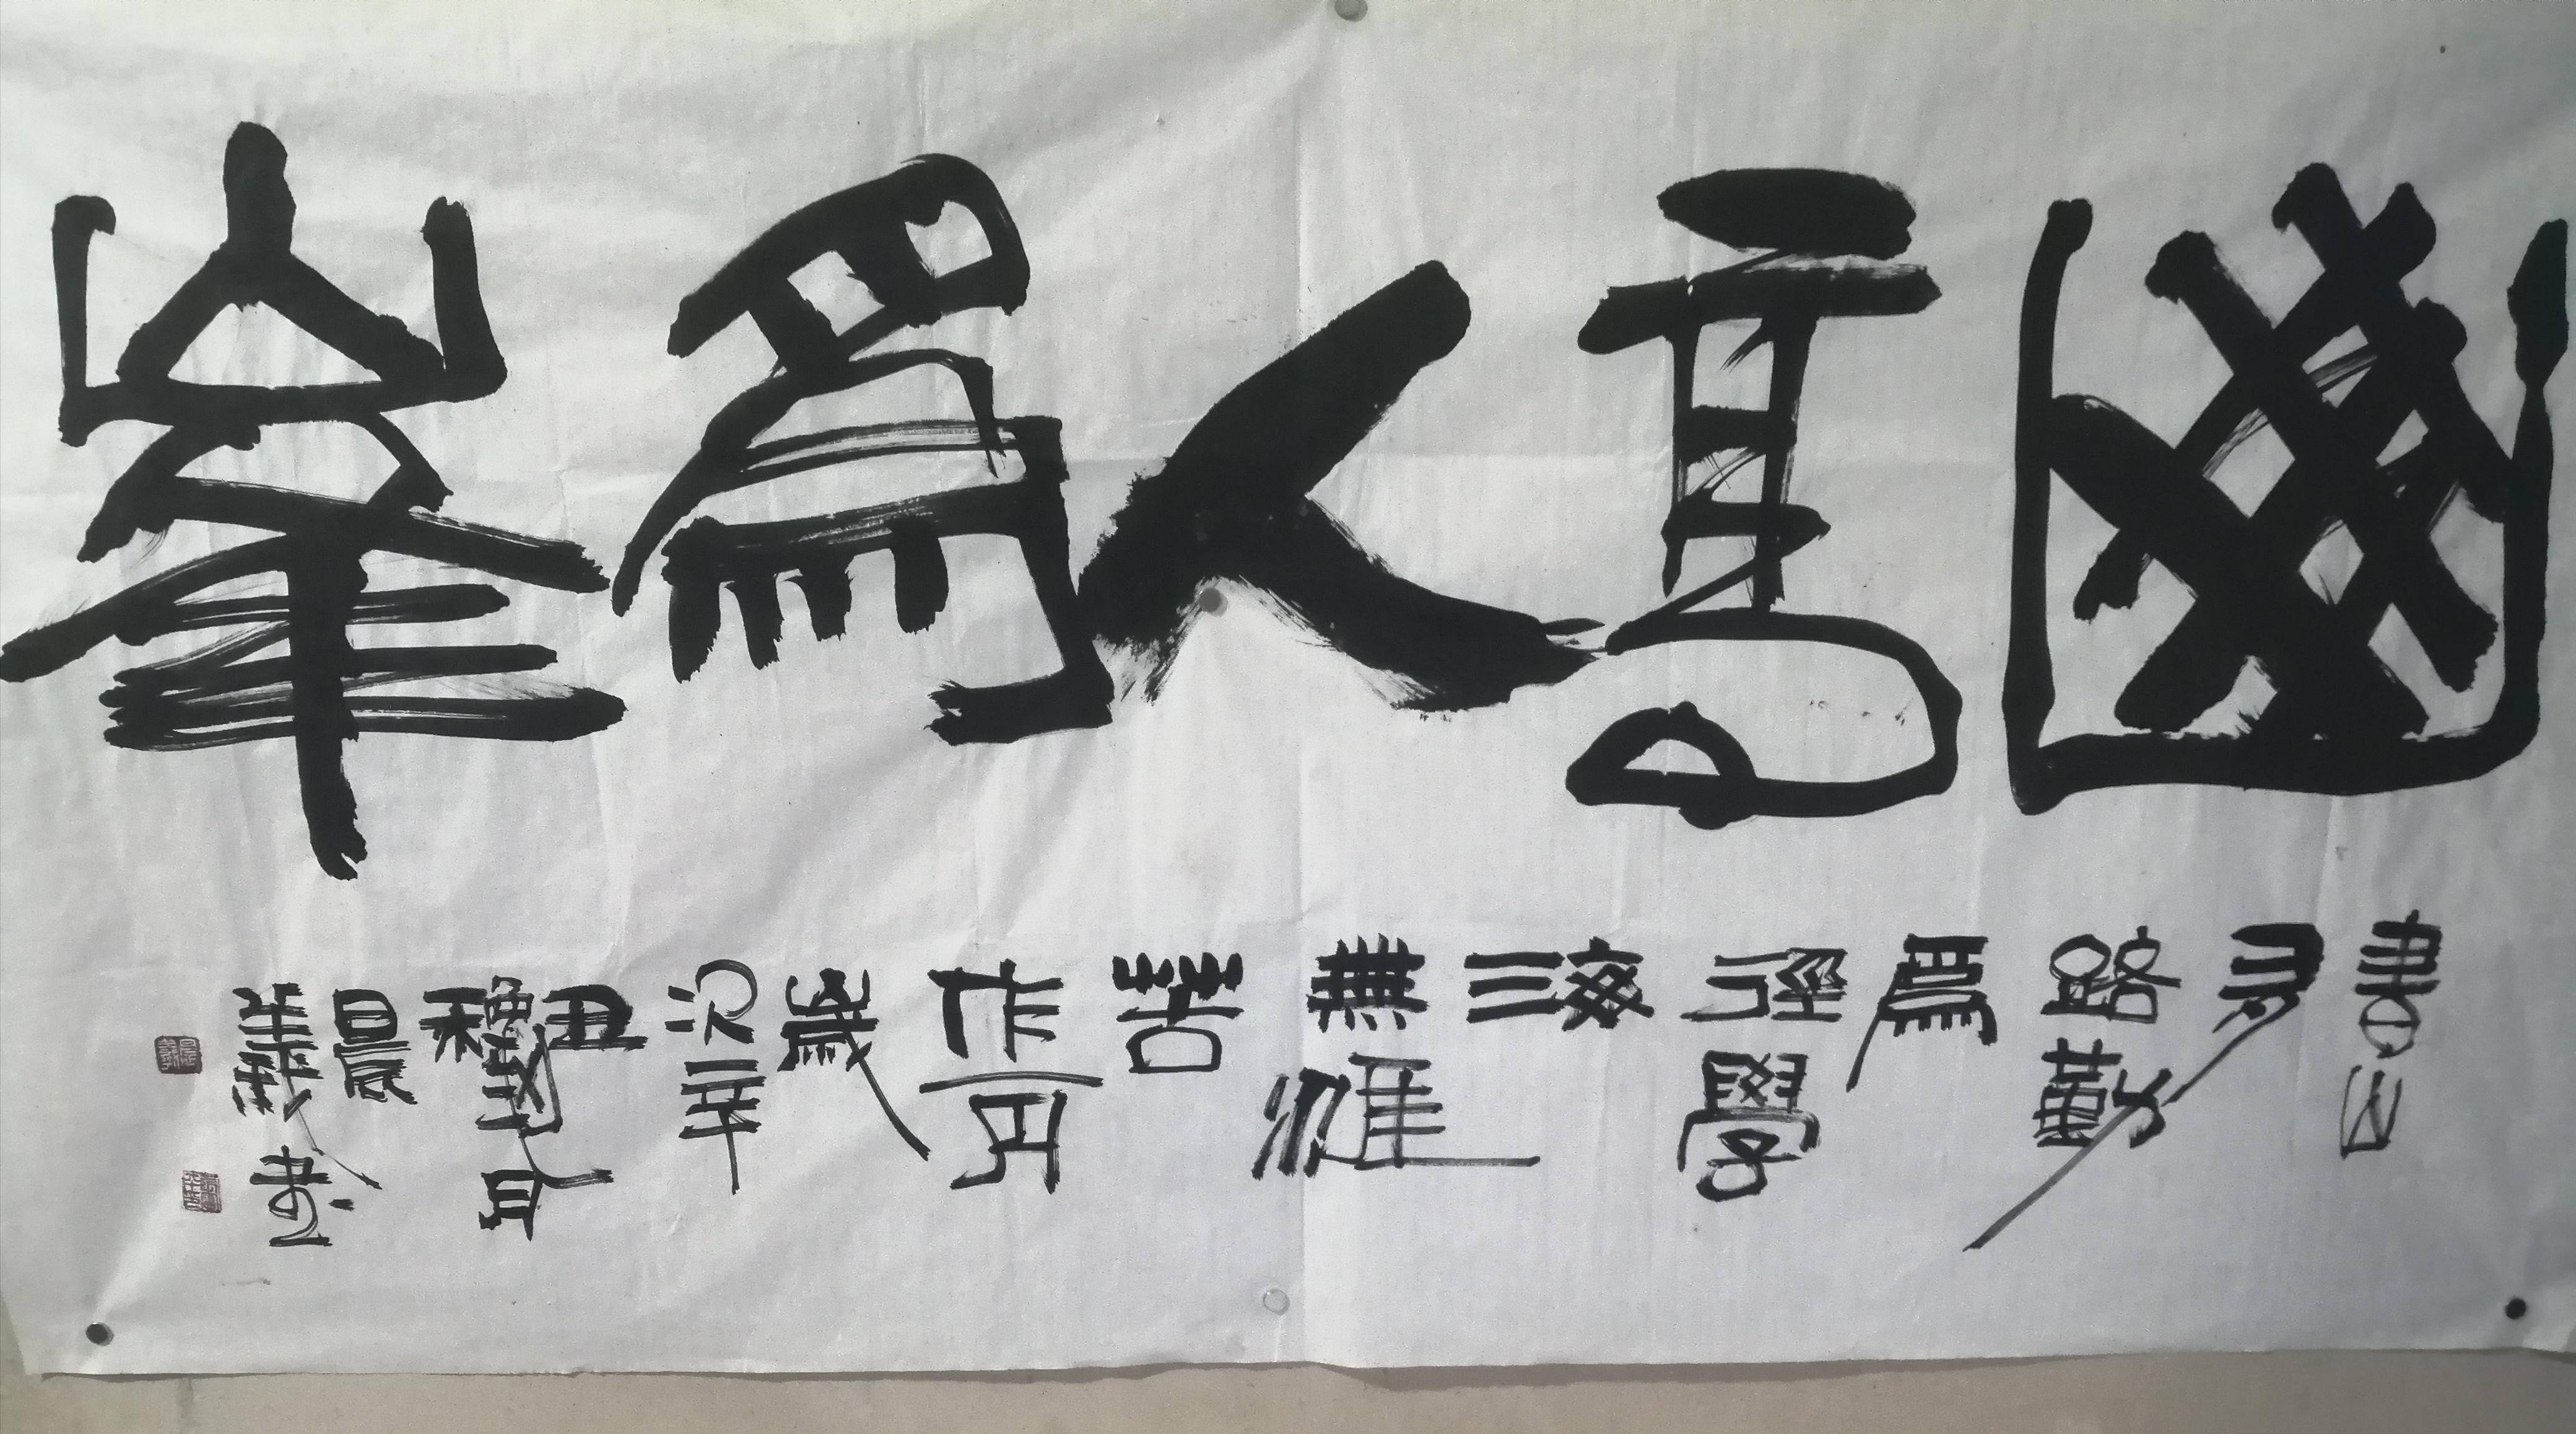 高人為峯
書山
有
路勤
為
徑學
海
無涯
苦
作舟
歲
次辛
丑
月
晨
義書